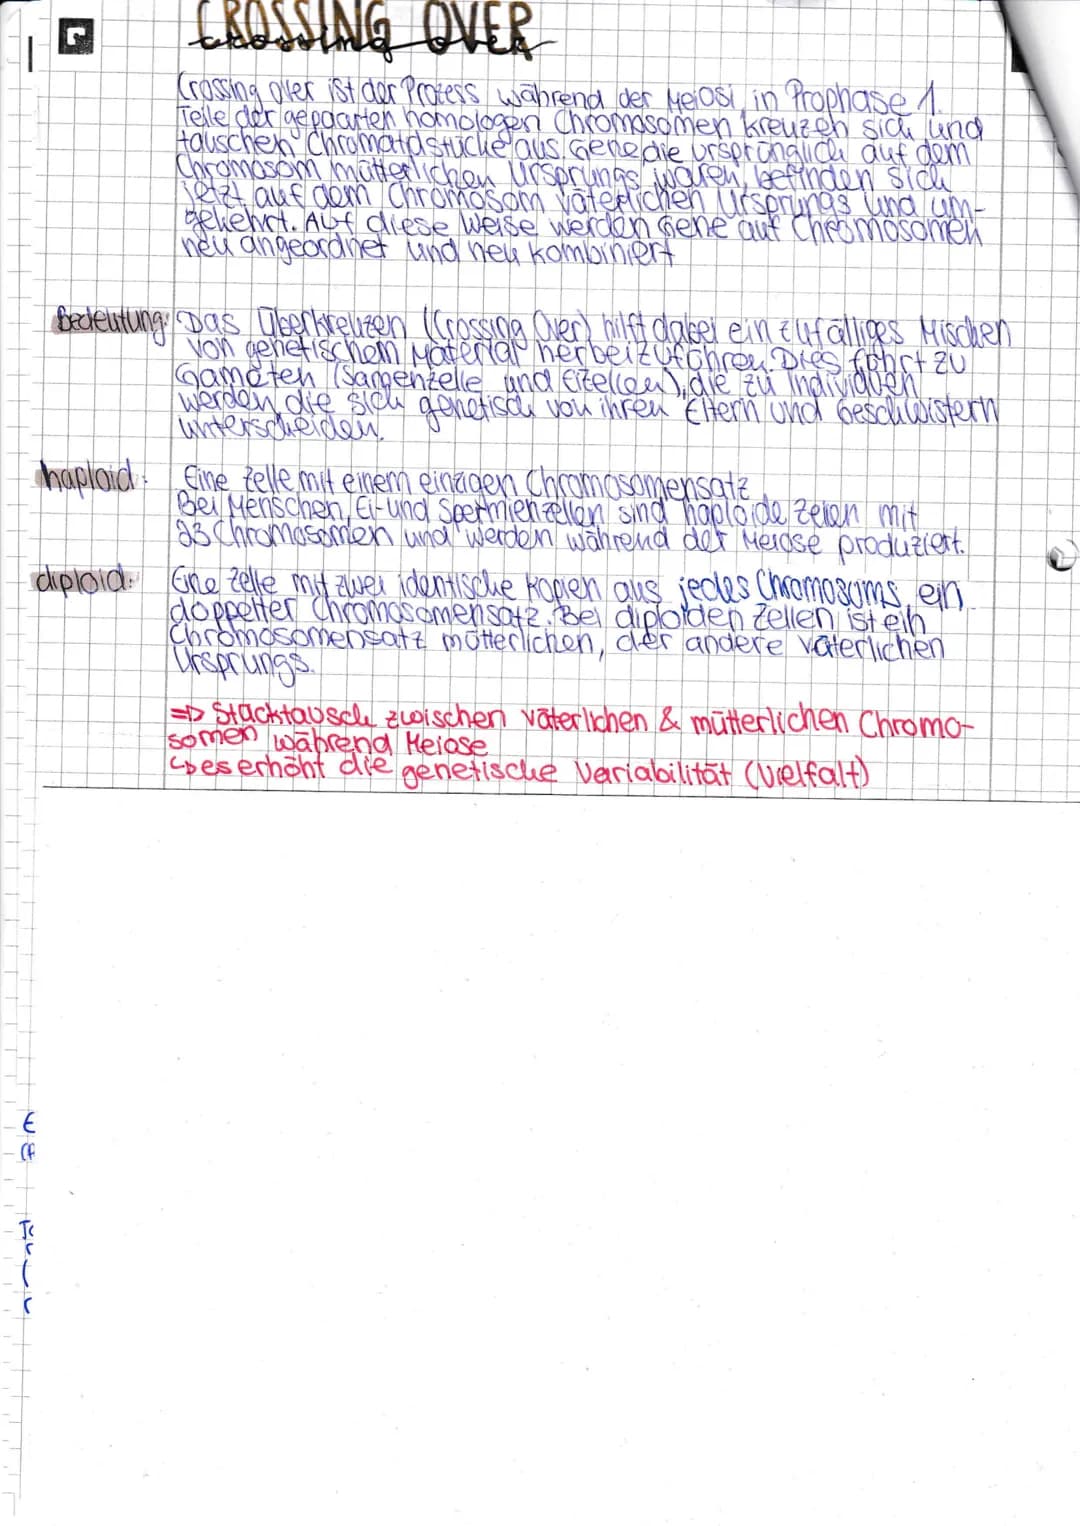 CROSSING OVER
Crossing over
Crossing over ist der Prozess während der Meiosi, in Prophase 1.
Teile der gepaarten homologen Chromosomen kreuzen sich und
tauschen Chromatidstücke aus. Gene die ursprünglich auf dem
Chromosom mütterlichen Ursprungs waren, befinden sich
jetzt auf dem Chromosom väterlichen Ursprungs und um-
gekehrt. Auf diese Weise werden Gene auf Chromosomen
neu angeordnet und neu kombiniert
Bedeutung: Das Überkreuzen (Crossing Over) hilft dabei ein zufälliges Mischen
von genetischem Material herbeizuführen. Dies führt zu
Gameten (Samenzelle und Eizellen), die zu Individuen
werden, die sich genetisch von ihren Eltern und Geschwistern
unterscheiden.
haploid: Eine Zelle mit einem einzigen Chromosomensatz
Bei Menschen, Ei- und Spermienzellen sind haploide Zellen mit
23 Chromosomen und werden während der Meiose produziert.
diploid: Eine Zelle mit zwei identische Kopien aus jedes Chromosoms ein
doppelter Chromosomensatz. Bei diploiden Zellen ist ein
Chromosomensatz mütterlichen, der andere väterlichen
Ursprungs.
=> Stücktausch zwischen väterlichen & mütterlichen Chromo-
somen während Meiose
↳ es erhöht die genetische Variabilität (Vielfalt)